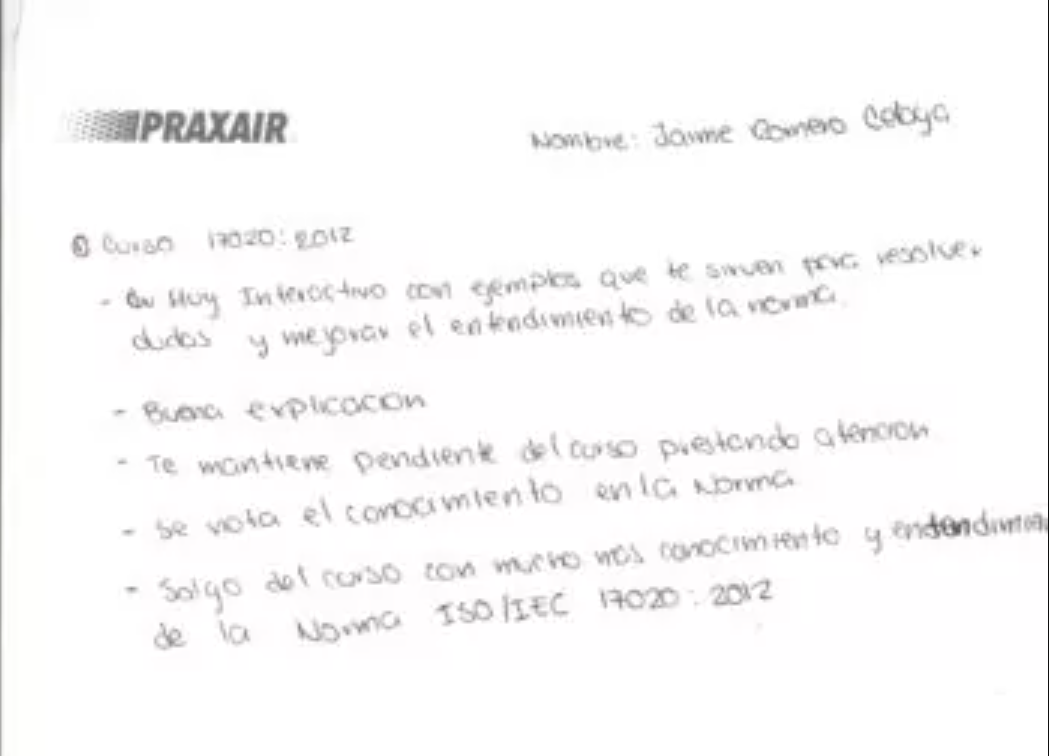 PRAXAIR
Nombre: Jaime Romero
① Curso 17020:2012
- Muy Interactivo con ejemplos que te sirven para resolver
dudas y mejorar el entendimiento de la norma.
- Buena explicacion
- Te mantiene pendiente del curso prestando atencion
- Se nota el conocimiento en la Norma
- Salgo del curso con mucho mas conocimiento y
de la Norma ISO/IEC 17020:2012